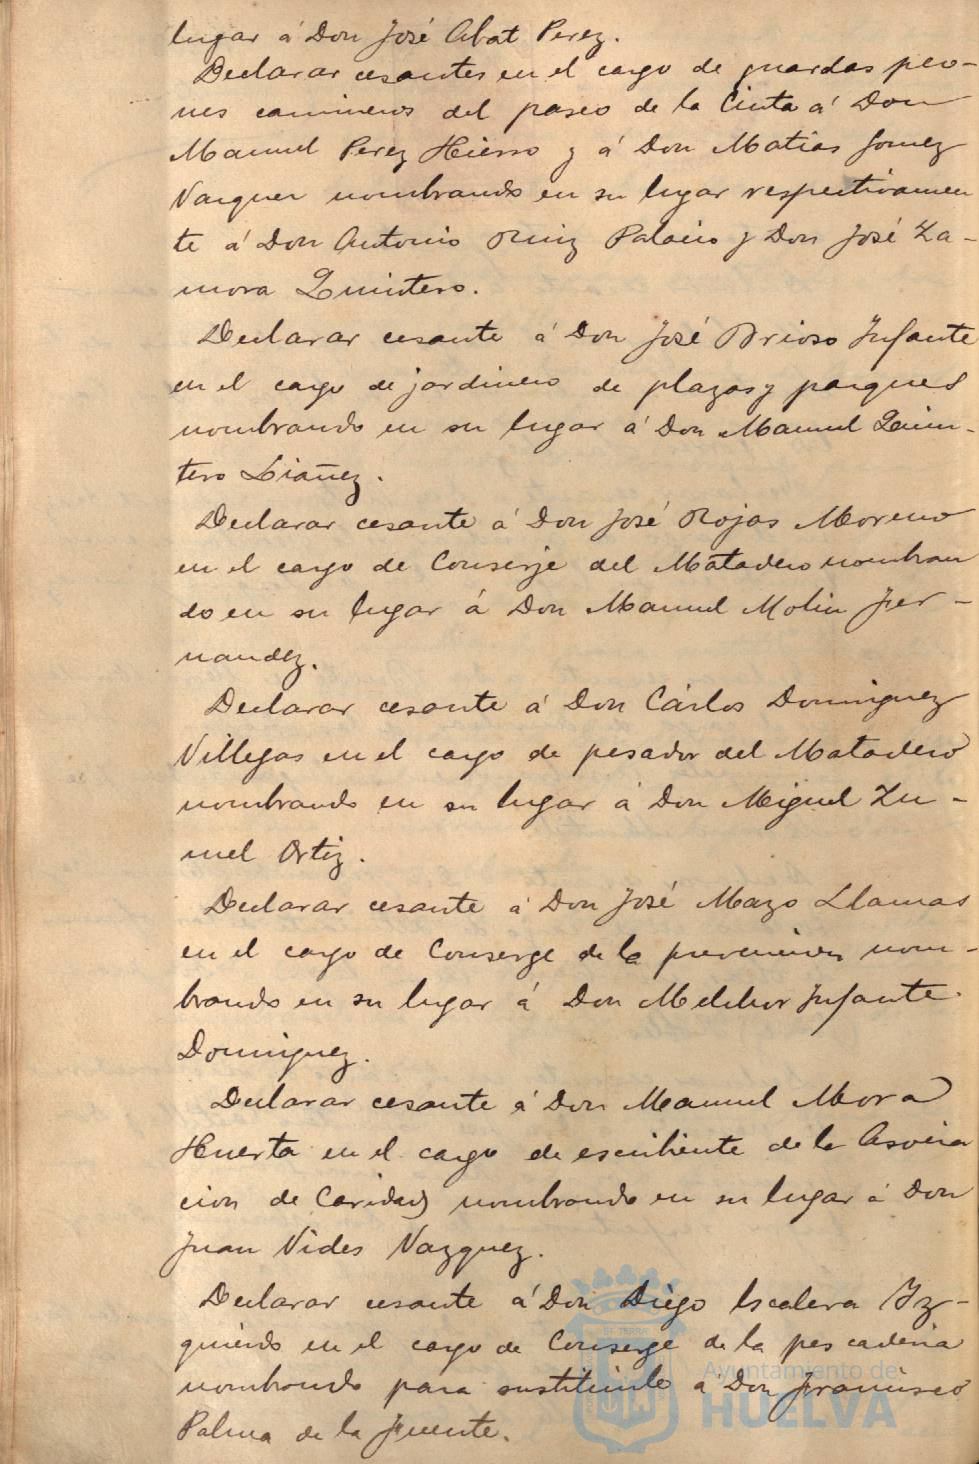 lugar á Don José Abat Perez.
Declarar cesantes en el cargo de guardas peo-
nes camineros del paseo de la Cinta á Don
Manuel Perez Hierro y á Don Matias Gomez
Vazquez nombrando en su lugar respectivamen
te á Don Antonio Ruiz Palacio y Don José Za-
mora Quintero.
Declarar cesante á Don José Brioso Infante
en el cargo de jardinero de plazas y parques
nombrando en su lugar á Don Manuel Quin-
tero Liañez.
Declarar cesante á Don José Rojas Moreno
en el cargo de Conserje del Matadero nombran
do en su lugar á Don Manuel Molin Fer-
nandez.
Declarar cesante á Don Cárlos Dominguez
Villegas en el cargo de pesador del Matadero
nombrando en su lugar á Don Miguel Zu-
mel Ortiz.
Declarar cesante á Don José Mazo Llamas
en el cargo de Conserge de la prevencion nom-
brando en su lugar á Don Melchor Infante
Dominguez.
Declarar cesante á Don Manuel Mora
Huerta en el cargo de escribiente de la Asocia
cion de Caridad nombrando en su lugar á Don
Juan Vides Vazquez.
Declarar cesante á Don Diego Escalera Iz-
quierdo en el cargo de Conserge de la pescaderia
nombrando para sustituirlo á Don Francisco
Palma de la Fuente.
Ayuntamiento de
HUELVA